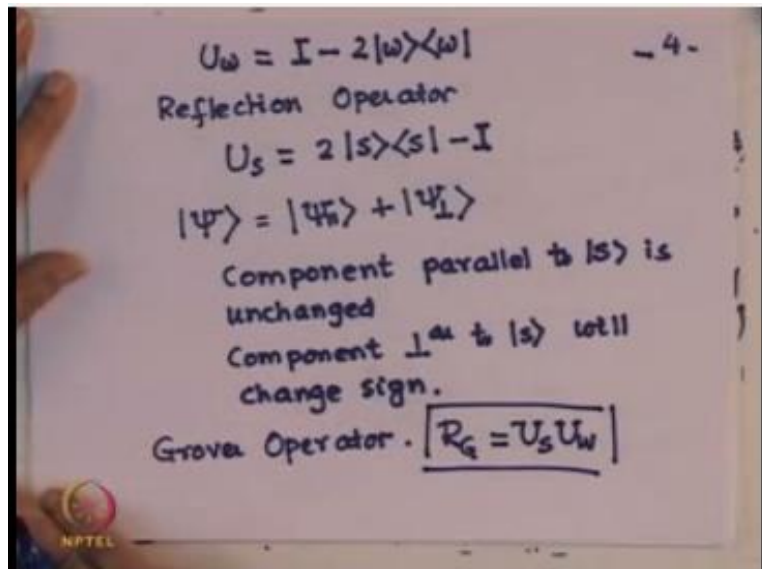 U_ω = I - 2|ω><ω|
- 4 -
Reflection Operator
U_s = 2|s><s| - I
|Ψ> = |Ψ_∥> + |Ψ_⊥>
Component parallel to |s> is
unchanged
Component ⊥ᵃʳ to |s> will
change sign.
Grover Operator. R_G = U_s U_ω
NPTEL